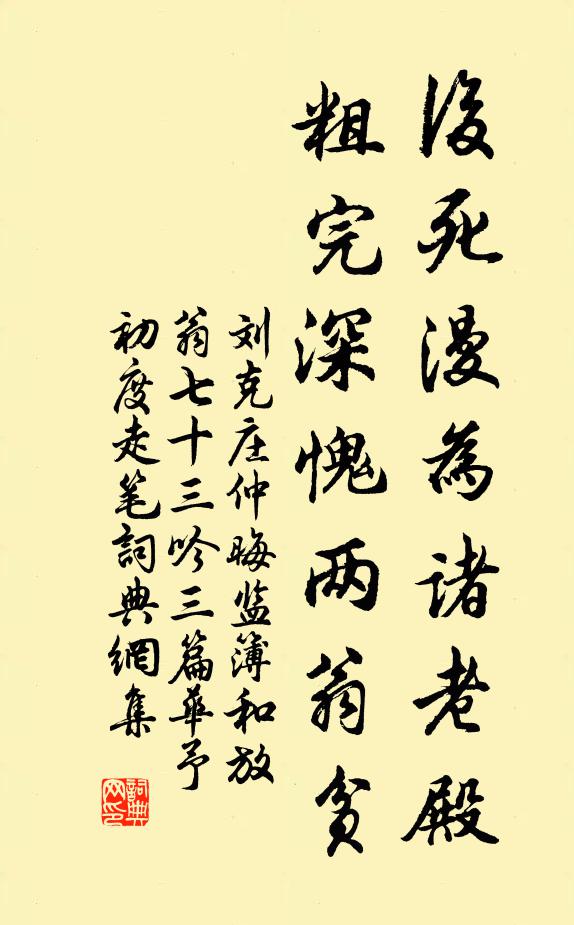 後死漫為諸老殿
粗完深愧两翁贫
刘克庄仲晦监簿和放
翁七十三吟三篇華予
初度走笔詞典網集
詞典
网印